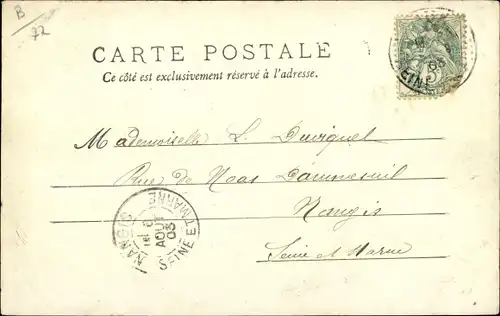 B
72
CARTE POSTALE
Ce côté est exclusivement réservé à l'adresse.
Mademoiselle L. Duviquet
Rue de
Nangis
Seine et Marne
NANGIS
AOUT
03
SEINE ET MARNE